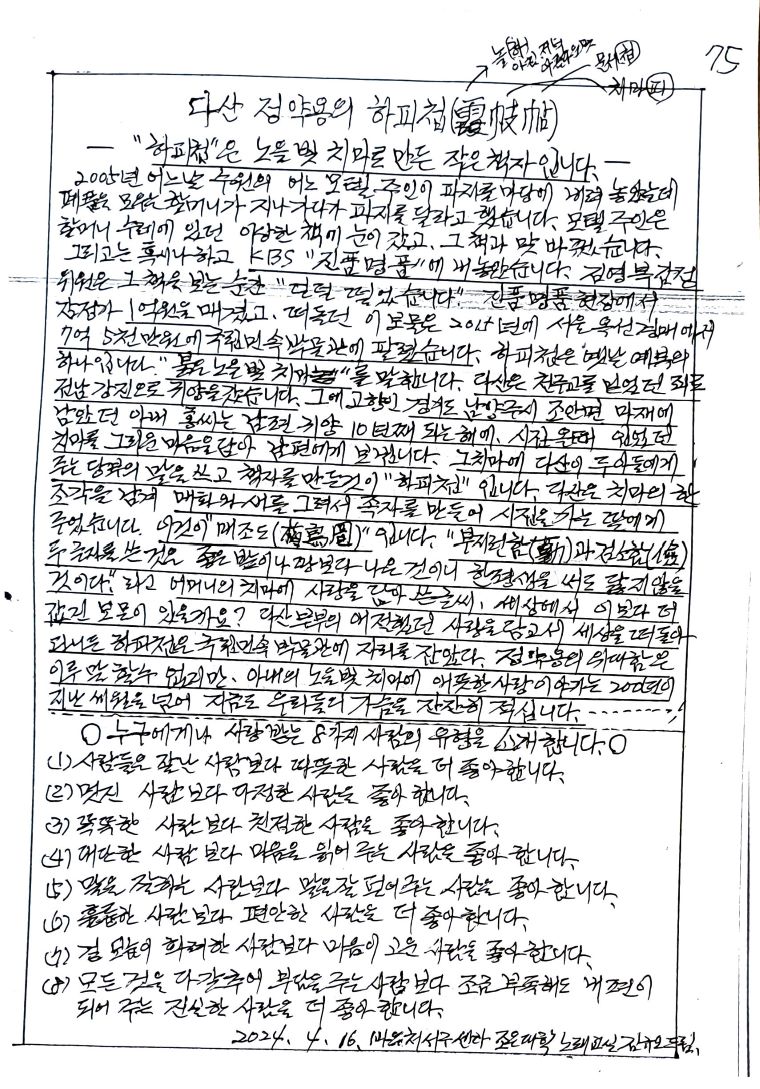 놀(하)
아침 저녁
문서(첩)
치마(피)
75
다산 정약용의 하피첩(霞帔帖)
— "하피첩"은 노을 빛 치마로 만든 작은 책자입니다. —
2005년 어느날 수원의 어느 모텔 주인이 파지를 마당에 내려 놓았는데
폐품을 모으는 할머니가 지나가다가 파지를 달라고 했습니다. 모텔 주인은
할머니 수레에 있던 이상한 책에 눈이 갔고, 그 책과 맞 바꿨습니다.
그리고는 혹시나 하고 KBS "진품명품"에 내놓았습니다. 김영복 감정
위원은 그 책을 보는 순간 "덜덜 떨었습니다." 진품명품 현장에서
감정가 1억원을 매겼고, 떠돌던 이 보물은 2015년에 서울 옥션 경매에서
7억 5천만원에 국립민속박물관에 팔렸습니다. 하피첩은 옛날 예복의
하나입니다. "붉은 노을 빛 치마"를 말합니다. 다산은 천주교를 믿었던 죄로
전남 강진으로 귀양을 갔습니다. 그에 고향인 경기도 남양주시 조안면 마재에
남았던 아내 홍씨는 남편 귀양 10년째 되는 해에, 시집 올때 입었던
치마를 그리운 마음을 담아 남편에게 보냅니다. 그 치마에 다산이 두 아들에게
주는 당부의 말을 쓰고 책자를 만든것이 "하피첩" 입니다. 다산은 치마의 한
조각을 남겨 매화와 새를 그려서 족자를 만들어 시집을 가는 딸에게
주었습니다. 이것이 "매조도(梅鳥圖)" 입니다. "부지런할(勤)과 검소할(儉)
두 글자를 쓴 것은 좋은 밭이나 땅보다 나은 것이니 한평생을 써도 닳지 않을
것이다." 라고 어머니의 치마에 사랑을 담아 쓴 글씨, 세상에서 이보다 더
값진 보물이 있을까요? 다산 부부의 애절했던 사랑을 담고서 세상을 떠돌아
다니든 하피첩은 국립민속 박물관에 자리를 잡았다. 정약용의 위대함은
이루 말 할수 없지만, 아내의 노을빛 치마에 애틋한 사랑 이야기는 200년의
지난 세월을 넘어 지금도 우리들의 가슴을 잔잔히 적십니다.
○ 누구에게나 사랑 받는 8가지 사람의 유형을 소개 합니다. ○
(1) 사람들은 잘난 사람보다 따뜻한 사람을 더 좋아 합니다.
(2) 멋진 사람 보다 다정한 사람을 좋아 합니다.
(3) 똑똑한 사람 보다 친절한 사람을 좋아 합니다.
(4) 대단한 사람 보다 마음을 읽어 주는 사람을 좋아 합니다.
(5) 말을 잘하는 사람보다 말을 잘 들어주는 사람을 좋아 합니다.
(6) 훌륭한 사람 보다 편안한 사람을 더 좋아 합니다.
(7) 겉 모습이 화려한 사람보다 마음이 고운 사람을 좋아 합니다.
(8) 모든 것을 다 갖추어 부담을 주는 사람 보다 조금 부족해도 내 편이
되어 주는 진실한 사람을 더 좋아 합니다.
2024. 4. 16. 노래교실 드림.